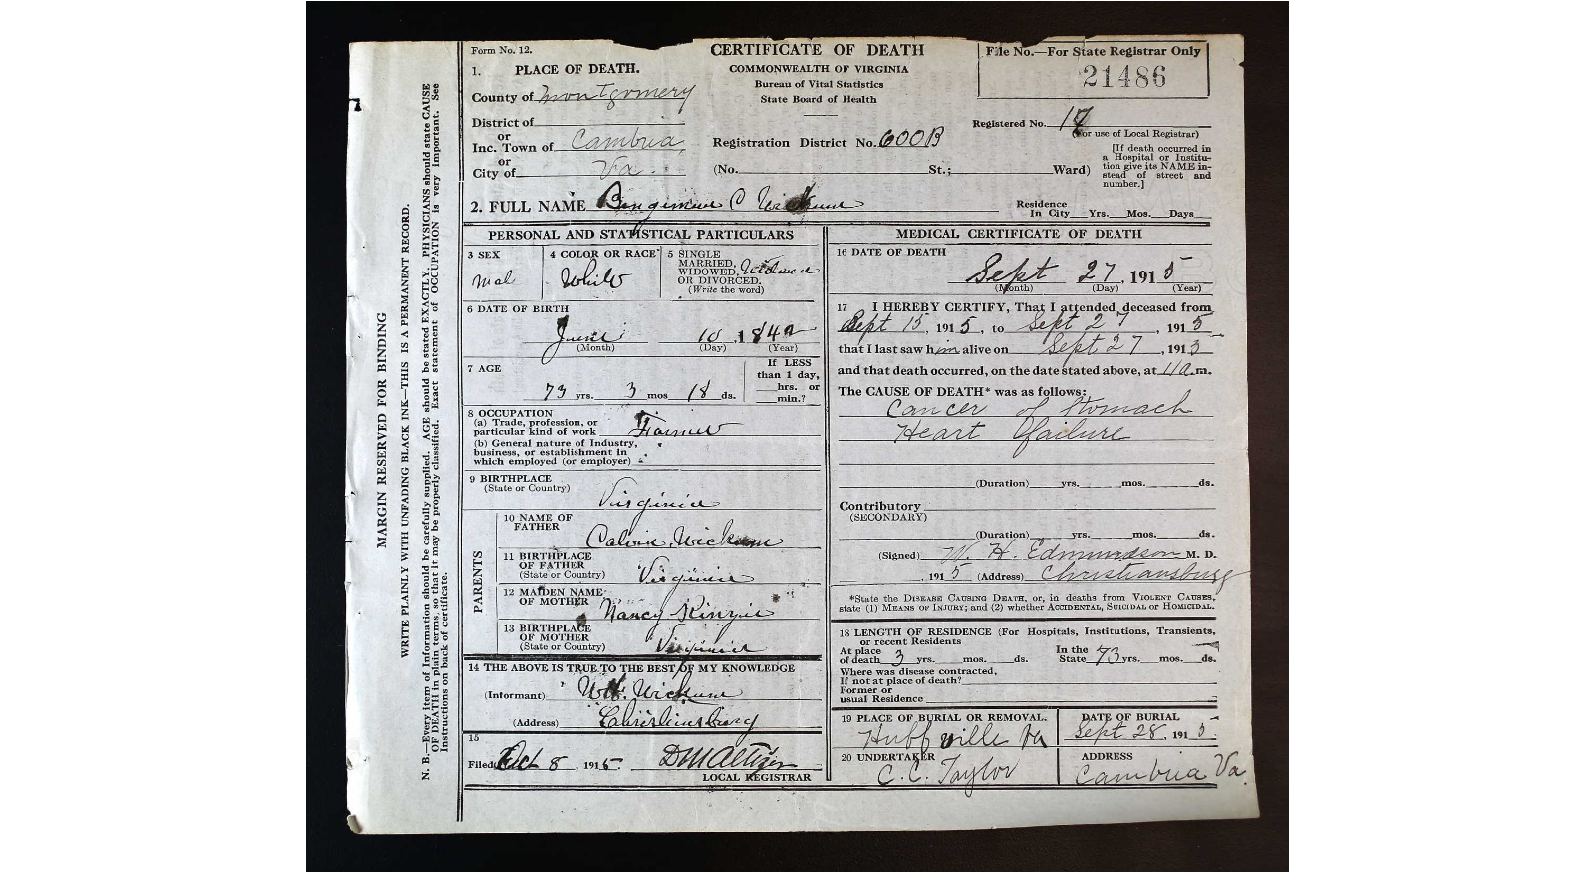 Form No. 12.
CERTIFICATE OF DEATH
COMMONWEALTH OF VIRGINIA
Bureau of Vital Statistics
State Board of Health
File No.—For State Registrar Only
21486
1. PLACE OF DEATH.
County of Montgomery
District of
or
Inc. Town of Cambria,
or
City of Va.
Registration District No. 600B
Registered No. 17
(For use of Local Registrar)
(No. St.; Ward)
[If death occurred in
a Hospital or Institu-
tion give its NAME in-
stead of street and
number.]
2. FULL NAME Bingimue C Wickume
Residence
In City Yrs. Mos. Days
PERSONAL AND STATISTICAL PARTICULARS
3 SEX
Mal
4 COLOR OR RACE
White
5 SINGLE
MARRIED,
WIDOWED,
OR DIVORCED.
(Write the word)
6 DATE OF BIRTH
June 10, 1842
(Month) (Day) (Year)
7 AGE
73 yrs. 3 mos 18 ds.
If LESS
than 1 day,
hrs. or
min.?
8 OCCUPATION
(a) Trade, profession, or
particular kind of work Farmer
(b) General nature of Industry,
business, or establishment in
which employed (or employer)
9 BIRTHPLACE
(State or Country)
Virginia
PARENTS
10 NAME OF
FATHER
Calvin Wickume
11 BIRTHPLACE
OF FATHER
(State or Country) Virginia
12 MAIDEN NAME
OF MOTHER Nancy Kinzie
13 BIRTHPLACE
OF MOTHER
(State or Country) Virginia
14 THE ABOVE IS TRUE TO THE BEST OF MY KNOWLEDGE
(Informant) Wickume
(Address) Christiansburg
15
Filed Oct 8, 1915.
LOCAL REGISTRAR
MEDICAL CERTIFICATE OF DEATH
16 DATE OF DEATH
Sept 27, 1915
(Month) (Day) (Year)
17 I HEREBY CERTIFY, That I attended deceased from
Sept 15, 1915, to Sept 27, 1915
that I last saw him alive on Sept 27, 1915
and that death occurred, on the date stated above, at m.
The CAUSE OF DEATH* was as follows:
Cancer of Stomach
Heart failure
(Duration) yrs. mos. ds.
Contributory
(SECONDARY)
(Duration) yrs. mos. ds.
(Signed) W. H. Edmundson M. D.
, 1915 (Address) Christiansburg
*State the DISEASE CAUSING DEATH, or, in deaths from VIOLENT CAUSES,
state (1) MEANS OF INJURY; and (2) whether ACCIDENTAL, SUICIDAL OR HOMICIDAL.
18 LENGTH OF RESIDENCE (For Hospitals, Institutions, Transients,
or recent Residents
At place
of death 3 yrs. mos. ds.
In the
State 73 yrs. mos. ds.
Where was disease contracted,
If not at place of death?
Former or
usual Residence
19 PLACE OF BURIAL OR REMOVAL.
Huffville Va
DATE OF BURIAL
Sept 28, 1915.
20 UNDERTAKER
C. C. Taylor
ADDRESS
Cambria Va.
MARGIN RESERVED FOR BINDING
WRITE PLAINLY WITH UNFADING BLACK INK—THIS IS A PERMANENT RECORD.
N. B.—Every item of Information should be carefully supplied. AGE should be stated EXACTLY. PHYSICIANS should state CAUSE
OF DEATH in plain terms, so that it may be properly classified. Exact statement of OCCUPATION is very important. See
Instructions on back of certificate.